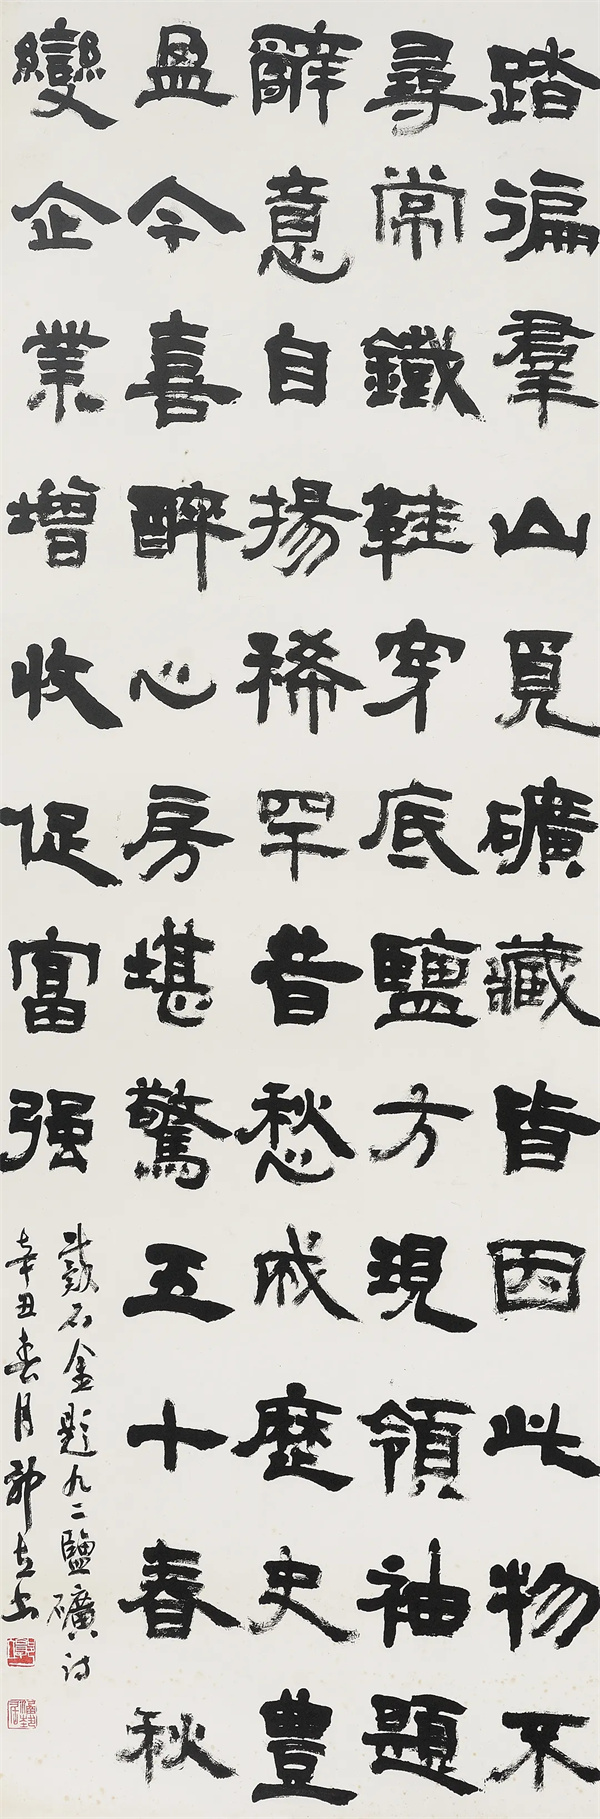 踏遍羣山覓礦藏皆因此物不
尋常鐵鞋穿底鹽方現領袖題
辭意自揚稀罕昔愁成歷史豊
盈今喜醉心房堪驚五十春秋
變企業增收促富强
金題九二鹽礦詩
辛丑春月